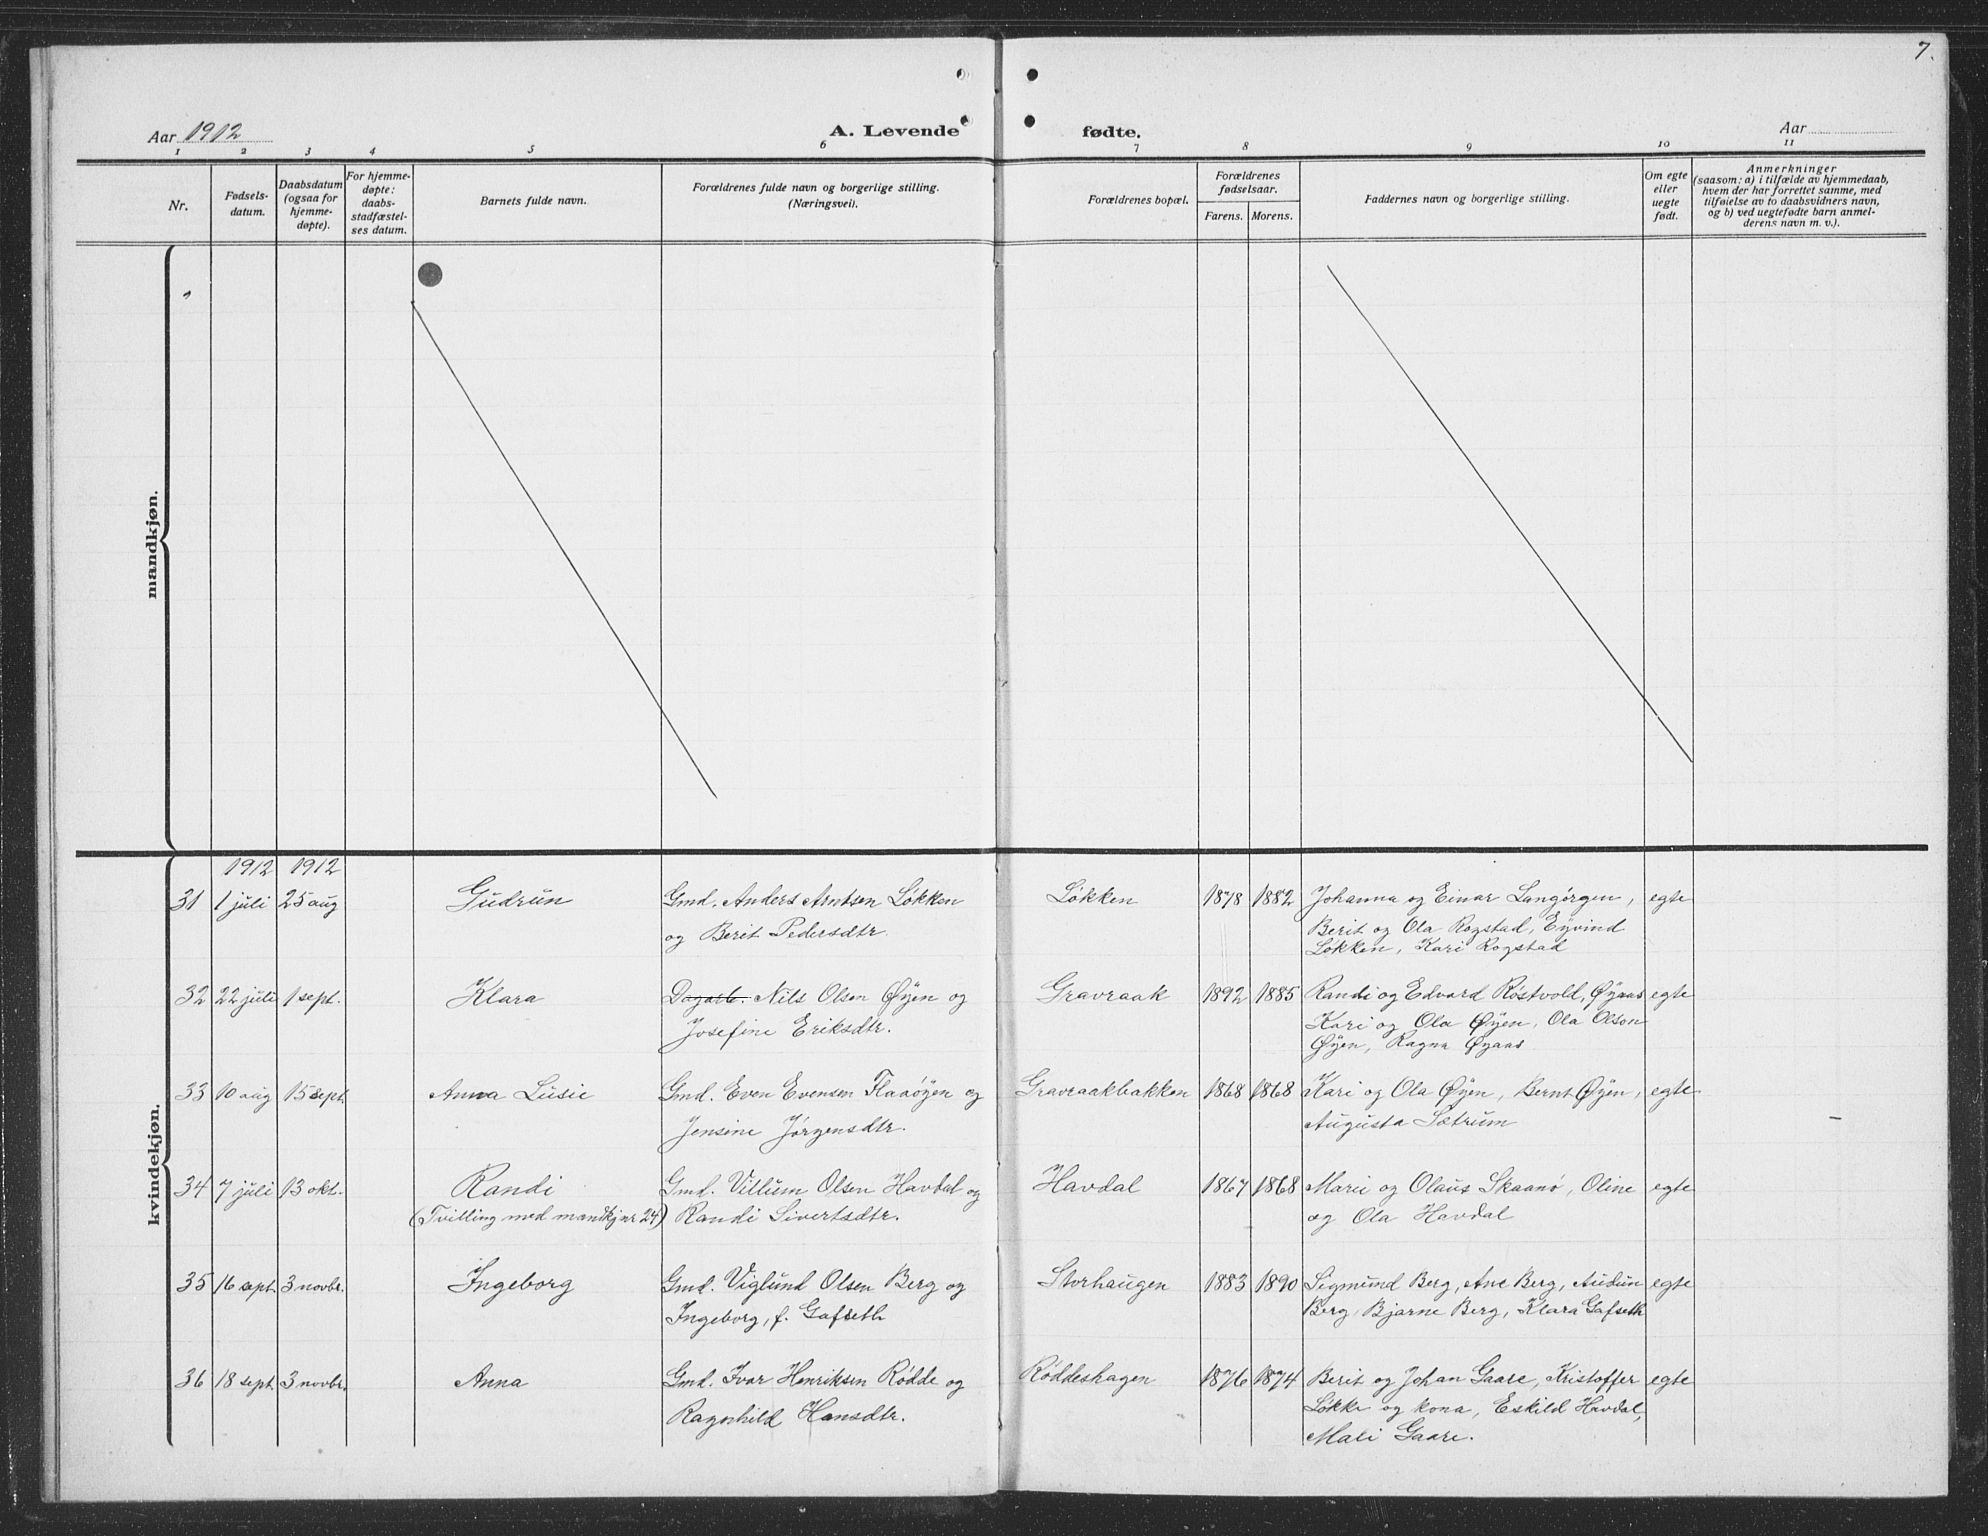 7.
Aar 1912
A. Levende fødte.
Aar
1 2 3 4 5 6 7 8 9 10 11
Nr.
Fødsels-
datum.
Daabsdatum
(ogsaa for
hjemme-
døpte).
For hjemme-
døpte:
daabs-
stadfæstel-
ses datum.
Barnets fulde navn.
Forældrenes fulde navn og borgerlige stilling.
(Næringsvei).
Forældrenes bopæl.
Forældrenes
fødselsaar.
Farens. Morens.
Faddernes navn og borgerlige stilling.
Om egte
eller
uegte
født.
Anmerkninger
(saasom: a) i tilfælde av hjemmedaab,
hvem der har forrettet samme, med
tilføielse av to daabsvidners navn,
og b) ved uegtefødte barn anmel-
derens navn m. v.).
mandkjøn.
kvindekjøn.
1912 1912
31 1 juli 25 aug Gudrun Gmd. Anders Arntsen Løkken Løkken 1878 1882 Johanna og Einar Langørgen, egte
og Berit Pedersdtr. Berit og Ola Rogstad, Eyvind
Løkken, Kari Rogstad
32 22 juli 1 sept. Klara Dagarb. Nils Olsen Øyen og Gravraak 1892 1885 Randi og Edvard Røstvold, Øyaas egte
Josefine Eriksdtr. Kari og Ola Øyen, Ola Olson
Øyen, Ragna Øyaas
33 10 aug 15 sept. Anna Lusie Gmd. Even Evensen Flaaøyen og Gravraakbakken 1868 1868 Kari og Ola Øyen, Bernt Øyen, egte
Jensine Jørgensdtr. Augusta Sætrum
34 7 juli 13 okt. Randi Gmd. Villum Olsen Havdal og Havdal 1867 1868 Marie og Olaus Skaanø, Oline egte
(Tvilling med mandkj nr 24) Randi Sivertsdtr. og Ola Havdal
35 16 sept. 3 novbr. Ingeborg Gmd. Viglund Olsen Berg og Storhaugen 1883 1890 Sigmund Berg, Ane Berg, Audun egte
Ingeborg, f. Gafseth Berg, Bjarne Berg, Klara Gafseth
36 18 sept. 3 novbr. Anna Gmd. Ivar Henriksen Rødde og Røddeshagen 1876 1874 Berit og Johan Gaare, Kristoffer egte
Ragnhild Hansdtr. Løkke og kona, Eskild Havdal,
Mali Gaare.